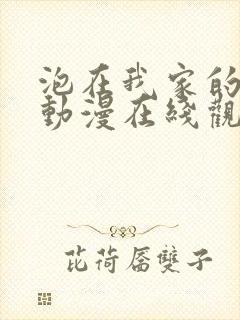 泡在我家的
動漫在綫觀
芘荷屬雙子